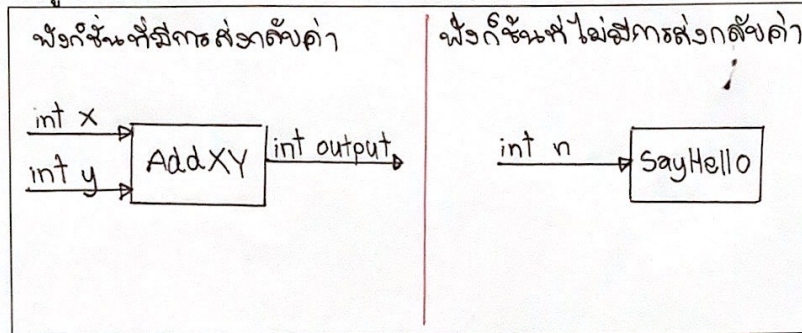 ฟังก์ชั่นที่มีการส่งกลับค่า
int x
int y
AddXY
int output
ฟังก์ชั่นที่ไม่มีการส่งกลับค่า
int n
SayHello